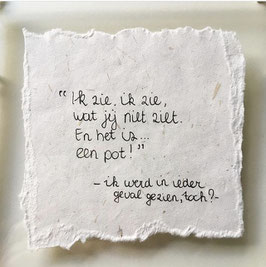 “Ik zie, ik zie,
wat jij niet ziet.
En het is...
een pot!”
- ik werd in ieder
geval gezien, toch? -